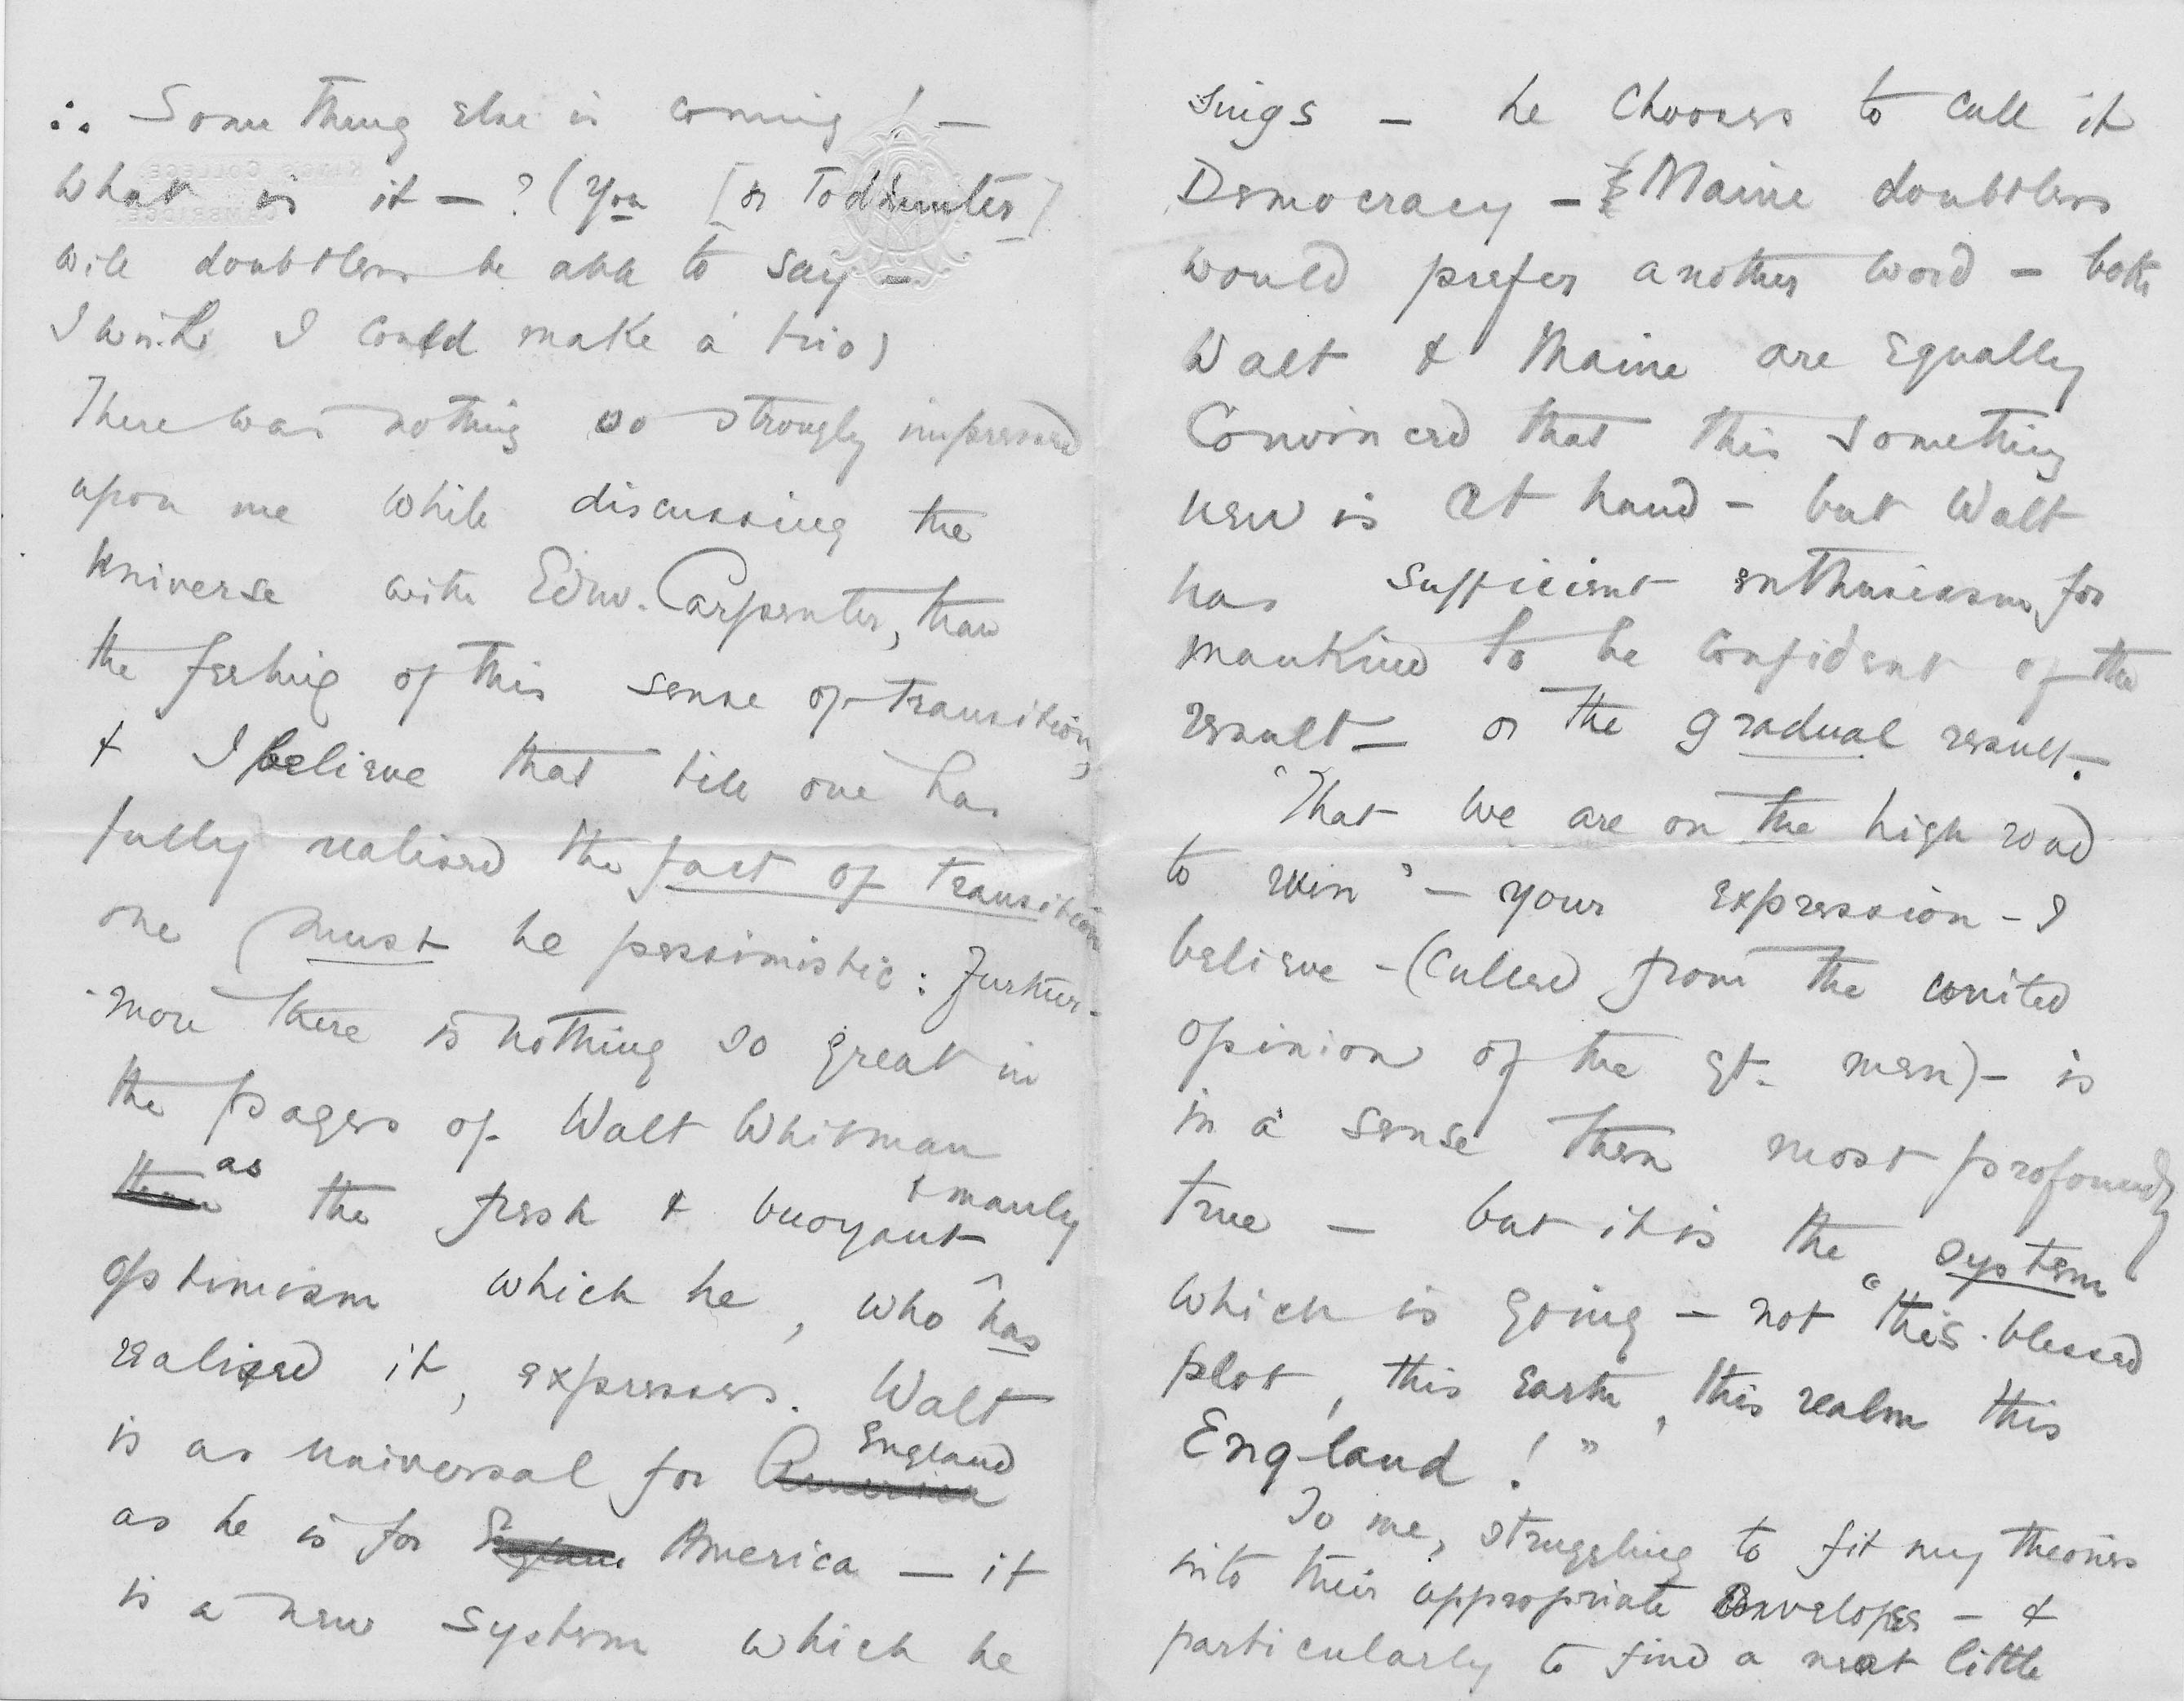 ∴ Something else is coming! —
What is it — ? (You [or Todhunter]
will doubtless be able to say —
I wish I could make a trio)
There was nothing so strongly impressed
upon me while discussing the
universe with Edw. Carpenter, than
the feeling of this sense of transition,
& I believe that till one has
fully realised the fact of transition
one must be pessimistic: Further-
more there is nothing so great in
the pages of Walt Whitman
than as the fresh & buoyant & manly
optimism which he, who has
realised it, expresses. Walt
is as universal for America England
as he is for England America — it
is a new system which he
sings — he chooses to call it
Democracy — & Maine doubtless
would prefer another word — both
Walt & Maine are equally
convinced that this something
new is at hand — but Walt
has sufficient enthusiasm for
mankind to be confident of the
result — or the gradual result.
'That we are on the high road
to ruin' — your expression — I
believe — (culled from the united
opinion of the gt. men) — is
in a sense then most profoundly
true — but it is the system
which is going — not "this blessed
plot, this earth, this realm this
England!"
To me, struggling to fit my theories
into their appropriate envelopes — &
particularly to find a neat little
KING'S COLLEGE
CAMBRIDGE